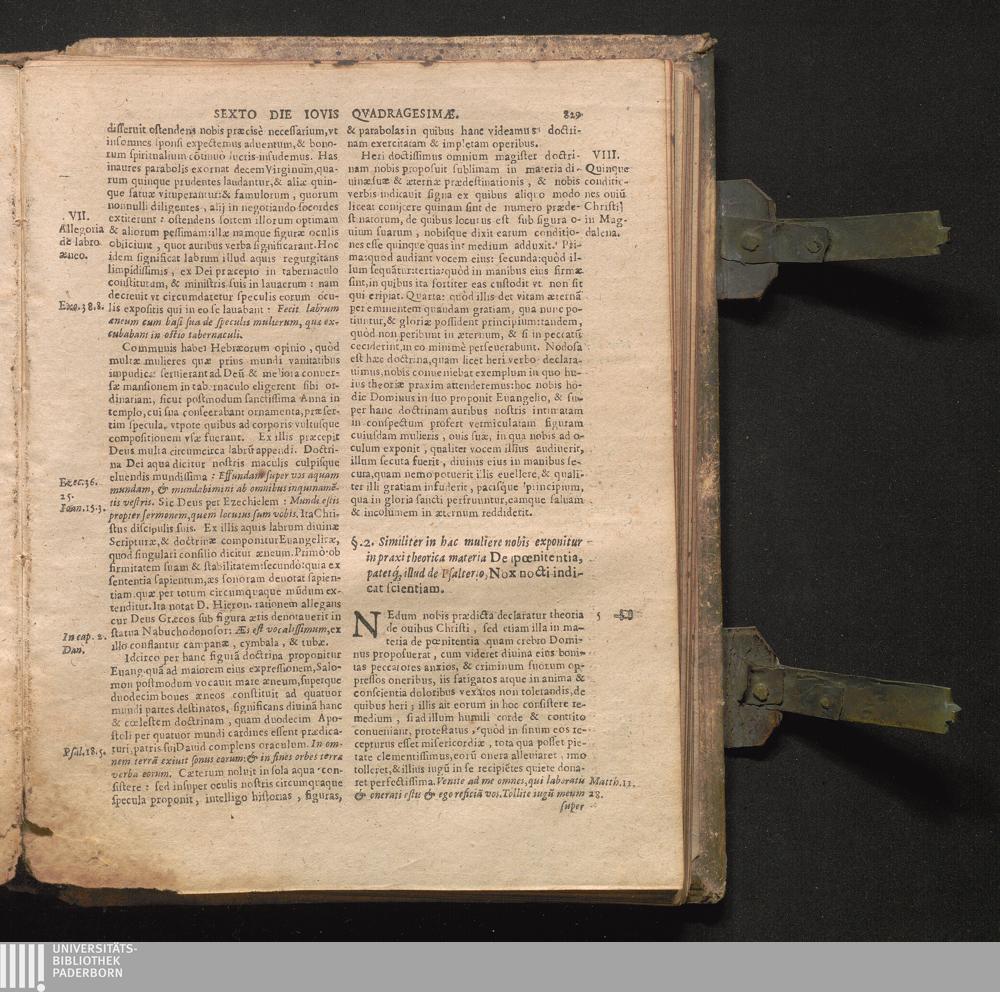 SEXTO DIE IOVIS QVADRAGESIMÆ. 829
disseruit ostendens nobis præcisè necessarium, vt
insomnes sponsi expectemus aduentum, & bono-
rum spiritualium cōtinuo lucris insudemus. Has
inaures parabolis exornat decem Virginum, qua-
rum quinque prudentes laudantur, & aliæ quin-
que fatuæ vituperantur: & famulorum, quorum
nonnulli diligentes, alij in negotiando socordes
extiterunt: ostendens sortem illorum optimam
& aliorum pessimam: illæ namque figuræ oculis
obijciunt, quot auribus verba significarant. Hoc
idem significat labrum illud aquis regurgitans
limpidissimis, ex Dei præcepto in tabernaculo
constitutum, & ministris suis in lauacrum: nam
decreuit vt circumdatetur speculis eorum ocu-
lis expositis qui in eo se lauabant: Fecit labrum
æneum cum basi sua de speculis mulierum, quæ ex-
cubabant in ostio tabernaculi.
VII.
Allegoria
de labro
æneo.
Exo. 38.8.
Communis habet Hebræorum opinio, quòd
multæ mulieres quæ prius mundi vanitatibus
impudicæ seruierant ad Deū & meliora conuer-
sæ mansionem in tabernaculo eligerent sibi or-
dinariam, sicut postmodum sanctissima Anna in
templo, cui sua consecrabant ornamenta, præser-
tim specula, vtpote quibus ad corporis vultusque
compositionem vsæ fuerant. Ex illis præcepit
Deus multa circumcirca labrū appendi. Doctri-
na Dei aqua dicitur nostris maculis culpisque
eluendis mundissima: Effundam super vos aquam
mundam, & mundabimini ab omnibus inquinamē-
tis vestris. Sic Deus per Ezechielem: Mundi estis
propter sermonem, quem locutus sum vobis. Ita Chri-
stus discipulis suis. Ex illis aquis labrum diuinæ
Scripturæ, & doctrinæ componitur Euangelicæ,
quod singulari consilio dicitur æneum. Primò ob
firmitatem suam & stabilitatem: secundò: quia ex
sententia sapientum, æs sonoram denotat sapien-
tiam, quæ per totum circumquaque mūdum ex-
tenditur. Ita notat D. Hieron. rationem allegans
cur Deus Græcos sub figura æris denotauerit in
statua Nabuchodonosor: Æs est vocalissimum, ex
illo conflantur campanæ, cymbala, & tubæ.
Ezec. 36.
25.
Ioan. 15.3.
In cap. 2.
Dan.
Idcirco per hanc figurā doctrina proponitur
Euang. quā ad maiorem eius expressionem, Salo-
mon postmodum vocauit mare æneum, superque
duodecim boues æneos constituit ad quatuor
mundi partes destinatos, significans diuinā hanc
& cœlestem doctrinam, quam duodecim Apo-
stoli per quatuor mundi cardines essent prædica-
turi, patris sui Dauid complens oraculum. In om-
nem terrā exiuit sonus eorum: & in fines orbis terræ
verba eorum. Cæterum noluit in sola aqua con-
sistere: sed insuper oculis nostris circumquaque
specula proponit, intelligo historias, figuras,
Psal. 18.5.
& parabolas in quibus hanc videamus doctri-
nam exercitatam & impletam operibus.
Heri doctissimus omnium magister doctri-
nam nobis proposuit sublimam in materia di-
uinæ suæ & æternæ prædestinationis, & nobis
verbis indicauit signa ex quibus aliquo modo
liceat conijcere quinam sint de numero præde-
stinatorum, de quibus locutus est sub figura o-
uium suarum, nobisque dixit earum conditio-
nes esse quinque quas in medium adduxit. Pri-
ma: quod audiant vocem eius: secunda: quòd il-
lum sequātur: tertia: quòd in manibus eius firmæ
sint, in quibus ita fortiter eas custodit vt non sit
qui eripiat. Quarta: quòd illis det vitam æternā
per eminentem quandam gratiam, qua nunc po-
tiuntur, & gloriæ possident principium: tandem,
quòd non peribunt in æternum, & si in peccatis
ceciderint, in eo minimè perseuerabunt. Nodosa
est hæc doctrina, quam licet heri verbo declara-
uimus, nobis conueniebat exemplum in quo hu-
ius theoriæ praxim attenderemus: hoc nobis ho-
die Dominus in suo proponit Euangelio, & su-
per hanc doctrinam auribus nostris intimatam
in conspectum profert vermiculatam figuram
cuiusdam mulieris, ouis suæ, in qua nobis ad o-
culum exponit, qualiter vocem illius audiuerit,
illum secuta fuerit, diuinis eius in manibus se-
cura, quam nemo potuerit illis euellere, & quali-
ter illi gratiam infuderit, pacisque principium,
qua in gloria sancti perfruuntur, eamque saluam
& incolumem in æternum reddiderit.
VIII.
Quinque
conditio-
nes ouiū
Christi
in Mag-
dalena.
§. 2. Similiter in hac muliere nobis exponitur
in praxi theorica materia De pœnitentia,
patetq́, illud de Psalterio, Nox nocti indi-
cat scientiam.
NEdum nobis prædicta declaratur theoria
de ouibus Christi, sed etiam illa in ma-
teria de pœnitentia quam crebro Domi-
nus proposuerat, cum videret diuina eius boni-
tas peccatores anxios, & criminum suorum op-
pressos oneribus, iis fatigatos atque in anima &
conscientia doloribus vexatos non tolerandis, de
quibus heri; illis ait eorum in hoc consistere re-
medium, si ad illum humili corde & contrito
conueniant, protestatus, quòd in sinum eos re-
cepturus esset misericordiæ, tota qua posset pie-
tate clementissimus, eorū onera alleuiaret, imo
tolleret, & illius iugū in se recipiētes quiete dona-
ret perfectissima. Venite ad me omnes, qui laboratis
& onerati estis & ego reficiā vos. Tollite iugū meum
super
5
Matth. 11.
28.
UNIVERSITÄTS-
BIBLIOTHEK
PADERBORN